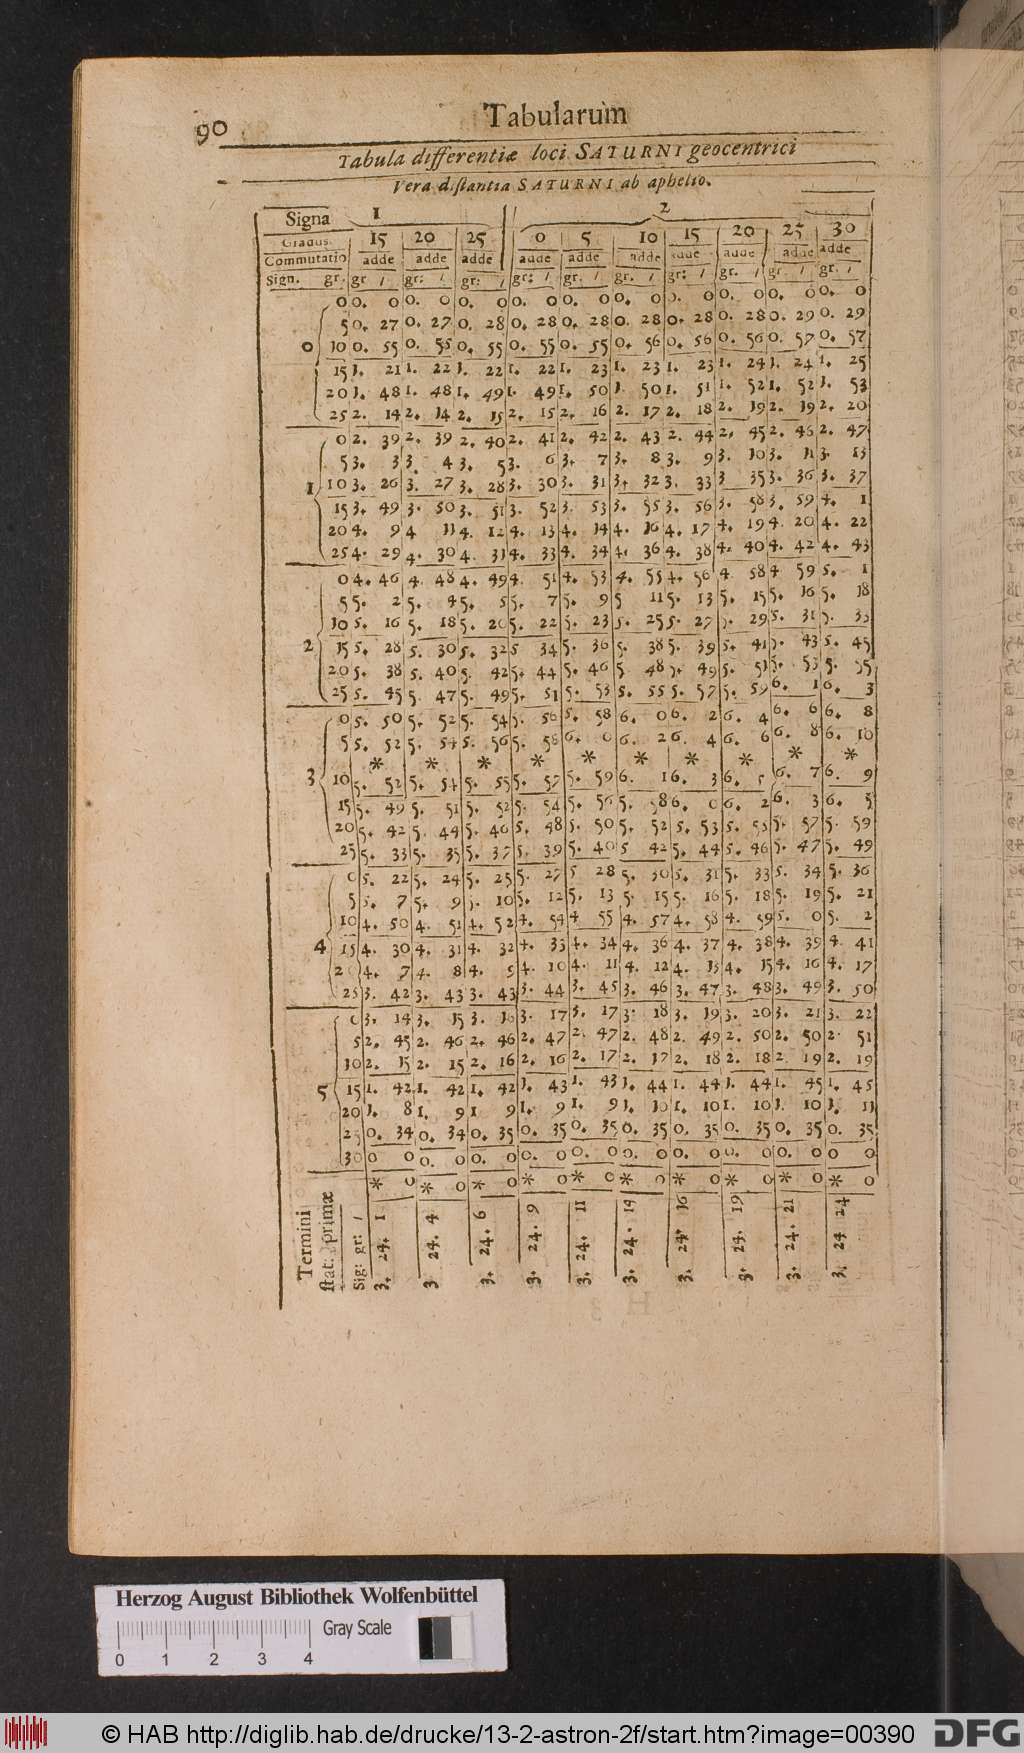 90
Tabularum
Tabula differentiæ loci SATURNI geocentrici
Vera distantia SATURNI ab aphelio.
Signa 1 2
Gradus 15 20 25 0 5 10 15 20 25 30
Commutatio adde adde adde adde adde adde adde adde adde adde
Sign. gr. gr / gr: / gr: / gr: / gr. / gr. / gr: / gr. / gr / gr. /
0 0. 0 0. 0 0. 0 0. 0 0. 0 0. 0 0. 0 0. 0 0. 0
5 0. 27 0. 27 0. 28 0. 28 0. 28 0. 28 0. 28 0. 28 0. 29 0. 29
0 10 0. 55 0. 55 0. 55 0. 55 0. 55 0. 56 0. 56 0. 56 0. 57 0. 57
15 1. 21 1. 22 1. 22 1. 22 1. 23 1. 23 1. 23 1. 24 1. 24 1. 25
20 1. 48 1. 48 1. 49 1. 49 1. 50 1. 50 1. 51 1. 52 1. 52 1. 53
25 2. 14 2. 14 2. 15 2. 15 2. 16 2. 17 2. 18 2. 19 2. 19 2. 20
0 2. 39 2. 39 2. 40 2. 41 2. 42 2. 43 2. 44 2. 45 2. 46 2. 47
5 3. 3 3 4 3. 5 3. 6 3. 7 3. 8 3. 9 3. 10 3. 11 3. 13
1 10 3. 26 3. 27 3. 28 3. 30 3. 31 3. 32 3. 33 3 35 3. 36 3. 37
15 3. 49 3. 50 3. 51 3. 52 3. 53 3. 55 3. 56 3. 58 3. 59 4. 1
20 4. 9 4 11 4. 12 4. 13 4. 14 4. 16 4. 17 4. 19 4. 20 4. 22
25 4. 29 4. 30 4. 31 4. 33 4. 34 4. 36 4. 38 4. 40 4. 42 4. 43
0 4. 46 4. 48 4. 49 4. 51 4. 53 4. 55 4. 56 4. 58 4 59 5. 1
5 5. 2 5. 4 5. 5 5. 7 5. 9 5 11 5. 13 5. 15 5. 16 5. 18
10 5. 16 5. 18 5. 20 5. 22 5. 23 5. 25 5. 27 5. 29 5. 31 5. 33
2 15 5. 28 5. 30 5. 32 5 34 5. 36 5. 38 5. 39 5. 41 5. 43 5. 45
20 5. 38 5. 40 5. 42 5. 44 5. 46 5. 48 5. 49 5. 51 5. 53 5. 55
25 5. 45 5. 47 5. 49 5. 51 5. 53 5. 55 5. 57 5. 59 6. 1 6. 3
0 5. 50 5. 52 5. 54 5. 56 5. 58 6. 0 6. 2 6. 4 6. 6 6. 8
5 5. 52 5. 54 5. 56 5. 58 6. 0 6. 2 6. 4 6. 6 6. 8 6. 10
* * * * * * * * * *
3 10 5. 52 5. 54 5. 55 5. 57 5. 59 6. 1 6. 3 6. 5 6. 7 6. 9
15 5. 49 5. 51 5. 52 5. 54 5. 56 5. 58 6. 0 6. 2 6. 3 6. 5
20 5. 42 5. 44 5. 46 5. 48 5. 50 5. 52 5. 53 5. 55 5. 57 5. 59
25 5. 33 5. 35 5. 37 5. 39 5. 40 5 42 5. 44 5. 46 5. 47 5. 49
0 5. 22 5. 24 5. 25 5. 27 5 28 5. 30 5. 31 5. 33 5. 34 5. 36
5 5. 7 5. 9 5. 10 5. 12 5. 13 5. 15 5. 16 5. 18 5. 19 5. 21
10 4. 50 4. 51 4. 52 4. 54 4 55 4. 57 4. 58 4. 59 5. 0 5. 2
4 15 4. 30 4. 31 4. 32 4. 33 4. 34 4. 36 4. 37 4. 38 4. 39 4. 41
20 4. 7 4. 8 4. 9 4. 10 4. 11 4. 12 4. 13 4. 15 4. 16 4. 17
25 3. 42 3. 43 3. 43 3. 44 3. 45 3. 46 3. 47 3. 48 3. 49 3. 50
0 3. 14 3. 15 3. 16 3. 17 3. 17 3. 18 3. 19 3. 20 3. 21 3. 22
5 2. 45 2. 46 2. 46 2. 47 2. 47 2. 48 2. 49 2. 50 2. 50 2. 51
10 2. 15 2. 15 2. 16 2. 16 2. 17 2. 17 2. 18 2. 18 2. 19 2. 19
5 15 1. 42 1. 42 1. 42 1. 43 1. 43 1. 44 1. 44 1. 44 1. 45 1. 45
20 1. 8 1. 9 1 9 1. 9 1. 9 1. 10 1. 10 1. 10 1. 10 1. 11
25 0. 34 0. 34 0. 35 0. 35 0. 35 0. 35 0. 35 0. 35 0. 35 0. 35
30 0 0 0. 0 0. 0 0. 0 0. 0 0. 0 0. 0 0. 0 0. 0 0 0
* 0 * 0 * 0 * 0 * 0 * 0 * 0 * 0 * 0 * 0
Termini
stat: primæ
Sig: gr: /
3. 24. 1
3 24. 4
3. 24. 6
3. 24. 9
3. 24. 11
3. 24. 14
3. 24. 16
3. 24. 19
3. 24. 21
3. 24 24
Herzog August Bibliothek Wolfenbüttel
Gray Scale
0 1 2 3 4
© HAB http://diglib.hab.de/drucke/13-2-astron-2f/start.htm?image=00390 DFG